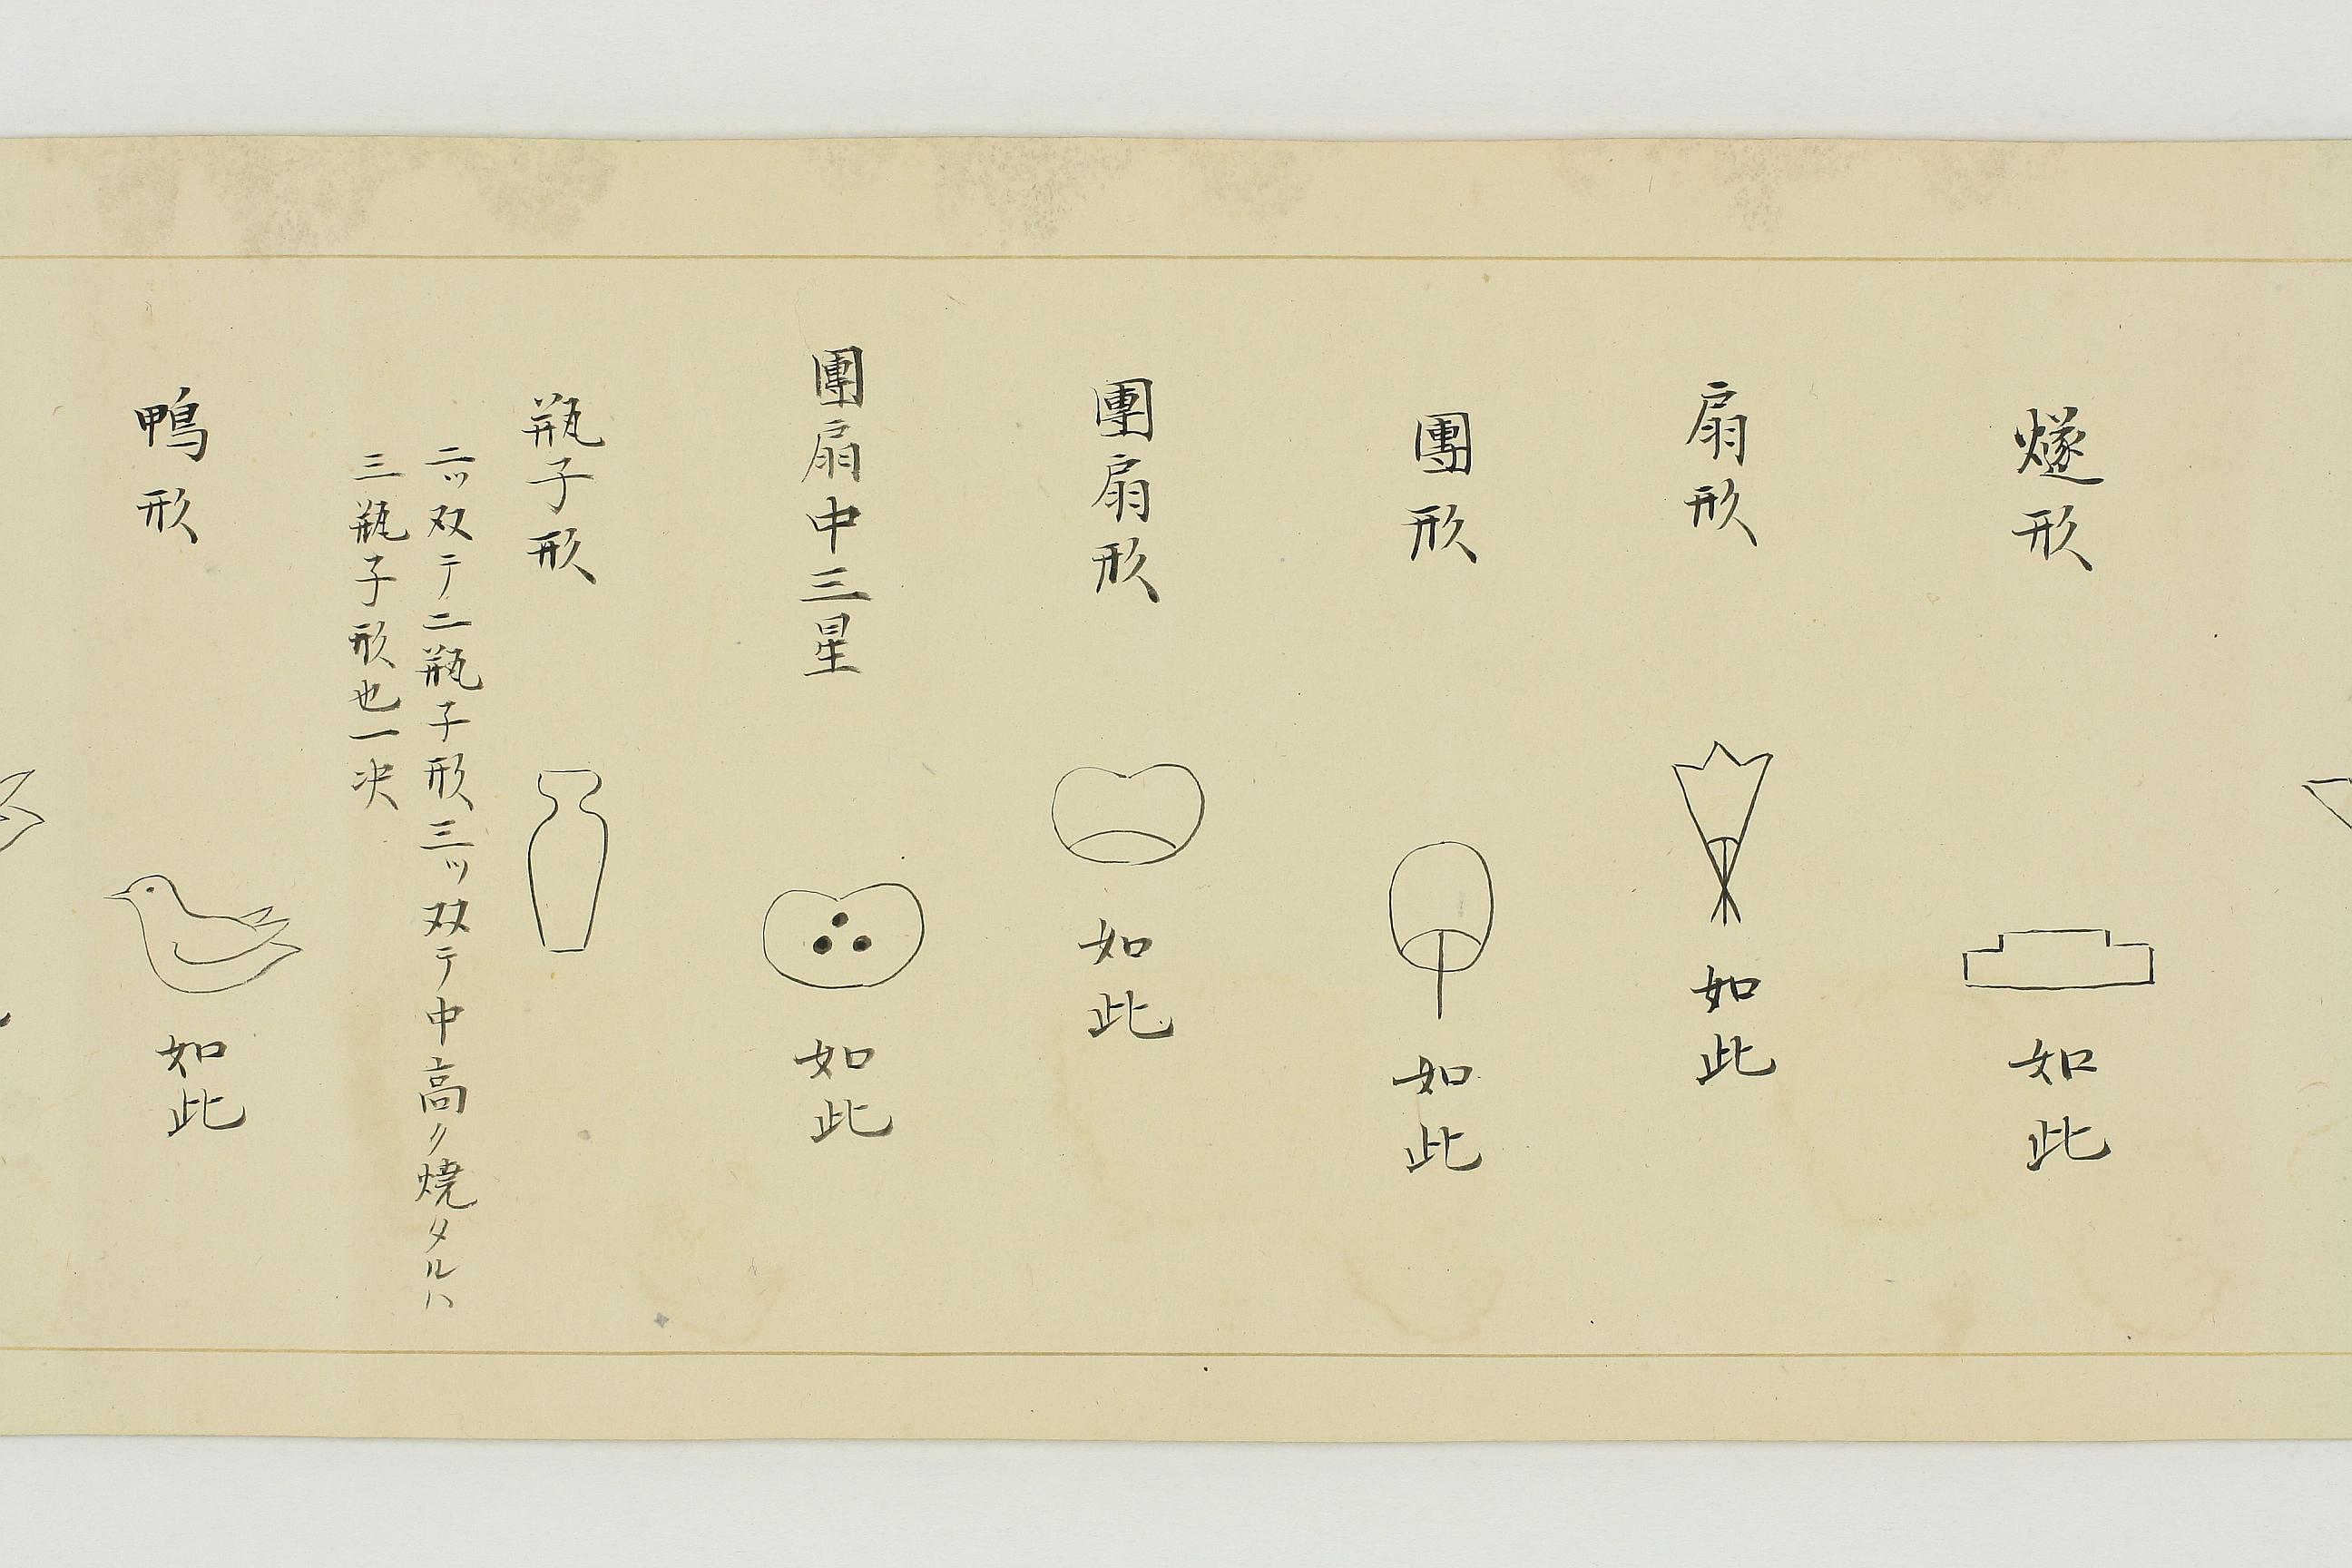 燧形
如此
扇形
如此
團形
如此
團扇形
如此
團扇中三星
如此
瓶子形
二ッ双テ二瓶子形三ッ双テ中高ク焼タルハ
三瓶子形也一决
鴨形
如此